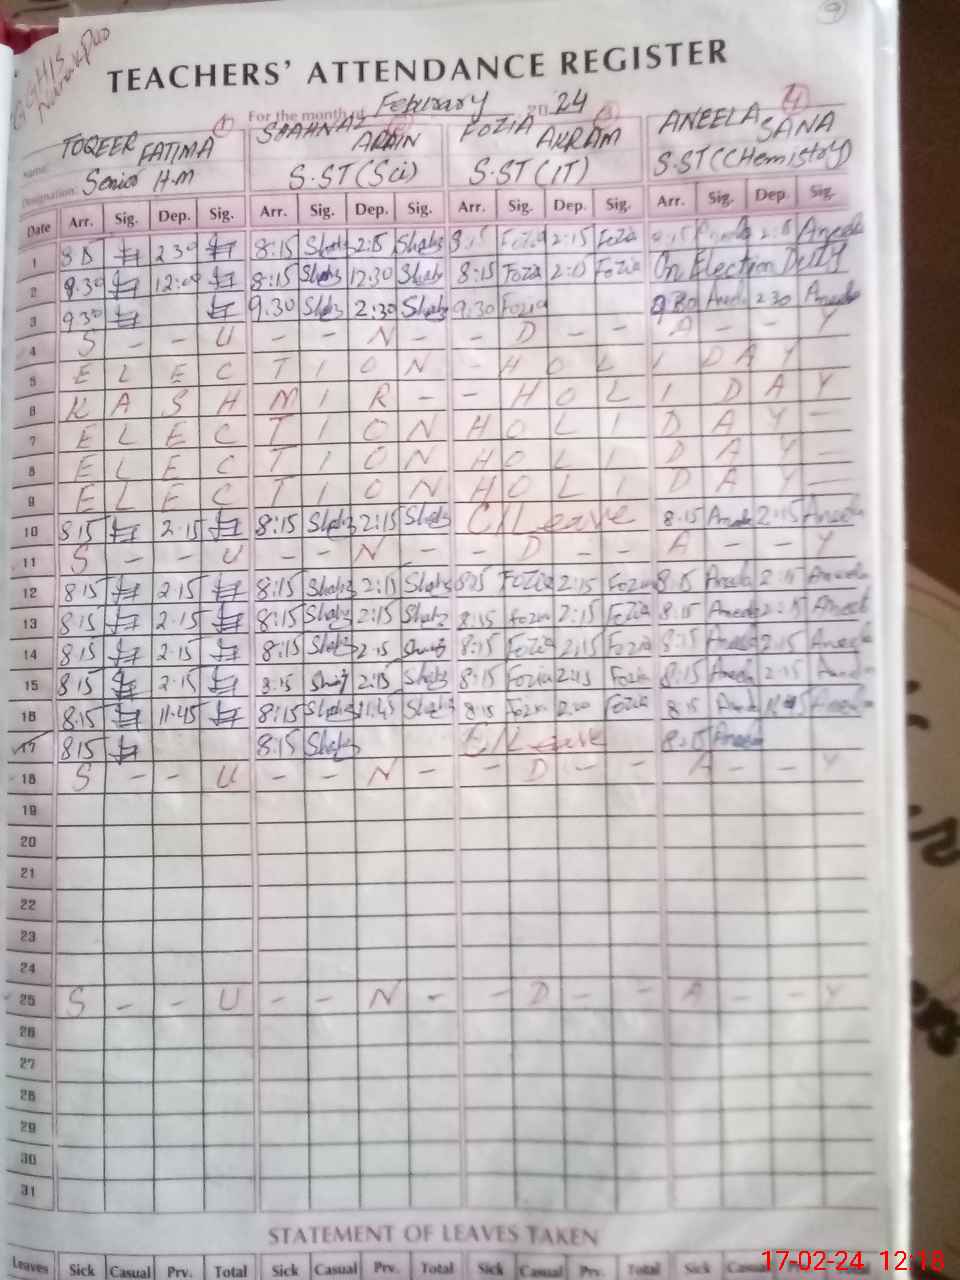 9
GGHIS
TEACHERS' ATTENDANCE REGISTER
For the month of February 20 24
Name: TOQEER FATIMA 1 SHAHNAZ ARAIN FOZIA AKRAM 3 ANEELA SANA 4
Designation: Senior H.M S.ST(Sci) S.ST(IT) S.ST(CHemistry)
Date Arr. Sig. Dep. Sig. Arr. Sig. Dep. Sig. Arr. Sig. Dep. Sig. Arr. Sig. Dep. Sig.
1 8.15 2.30 8:15 Shahz 2:15 Shahz 8:15 Fozia 2:15 Fozia 8:15 Aneela 2:15 Aneela
2 9.30 12:00 8:15 Shahz 12:30 Shahz 8:15 Fozia 2:15 Fozia On Election Duty
3 9.30 9.30 Shahz 2:30 Shahz 9:30 Fozia 9.30 Aneela 2.30 Aneela
4 S - - U - - N - - D - - A - - Y
5 E L E C T I O N - H O L I D A Y
6 K A S H M I R - - H O L I D A Y
7 E L E C T I O N H O L I D A Y -
8 E L E C T I O N H O L I D A Y -
9 E L E C T I O N H O L I D A Y -
10 8.15 2.15 8:15 Shahz 2:15 Shahz C/Leave 8.15 Aneela 2:15 Aneela
11 S - - U - - N - - D - - A - - Y
12 8.15 2.15 8:15 Shahz 2:15 Shahz 8:15 Fozia 2:15 Fozia 8:15 Aneela 2:15 Aneela
13 8.15 2.15 8:15 Shahz 2:15 Shahz 8:15 Fozia 2:15 Fozia 8:15 Aneela 2:15 Aneela
14 8.15 2.15 8:15 Shahz 2.15 Shahz 8:15 Fozia 2:15 Fozia 8:15 Aneela 2.15 Aneela
15 8.15 2.15 8:15 Shahz 2:15 Shahz 8:15 Fozia 2:15 Fozia 8:15 Aneela 2:15 Aneela
16 8.15 11.45 8:15 Shahz 11:45 Shahz 8:15 Fozia Fozia 8:15 Aneela Aneela
17 8.15 8:15 Shahz C/Leave 8:15 Aneela
18 S - - U - - N - - D - - A - - Y
19
20
21
22
23
24
25 S - - U - - N - - D - - A - - Y
26
27
28
29
30
31
STATEMENT OF LEAVES TAKEN
Leaves Sick Casual Prv. Total Sick Casual Prv. Total Sick Casual Prv. Total Sick Casual Prv. Total
17-02-24 12:18